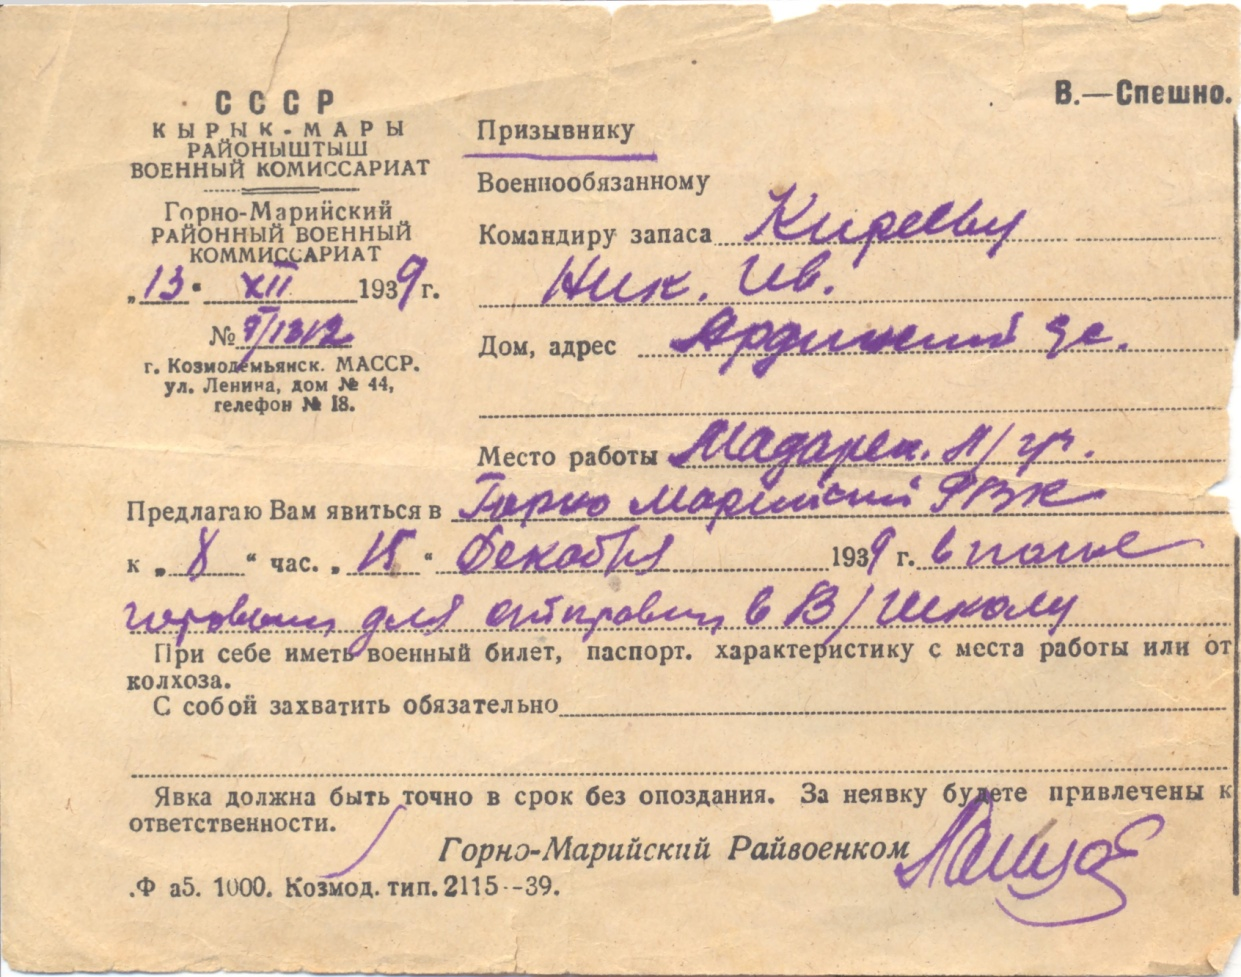 В.—Спешно.
СССР
КЫРЫК-МАРЫ
РАЙОНЫШТЫШ
ВОЕННЫЙ КОМИССАРИАТ
Горно-Марийский
РАЙОННЫЙ ВОЕННЫЙ
КОММИССАРИАТ
„13“ XII 1939 г.
№
г. Козмодемьянск. МАССР.
ул. Ленина, дом № 44,
гелефон № 18.
Призывнику
Военнообязанному
Командиру запаса Кирееву
Ник. Ив.
Дом, адрес Ардинский
Место работы
Предлагаю Вам явиться в Горно Марийский РВК
к „8“ час. „15“ Декабря 1939 г. в
готовым для отправки в В/Школу
При себе иметь военный билет, паспорт. характеристику с места работы или от
колхоза.
С собой захватить обязательно
Явка должна быть точно в срок без опоздания. За неявку будете привлечены к
ответственности.
Горно-Марийский Райвоенком
.Ф а5. 1000. Козмод. тип. 2115--39.